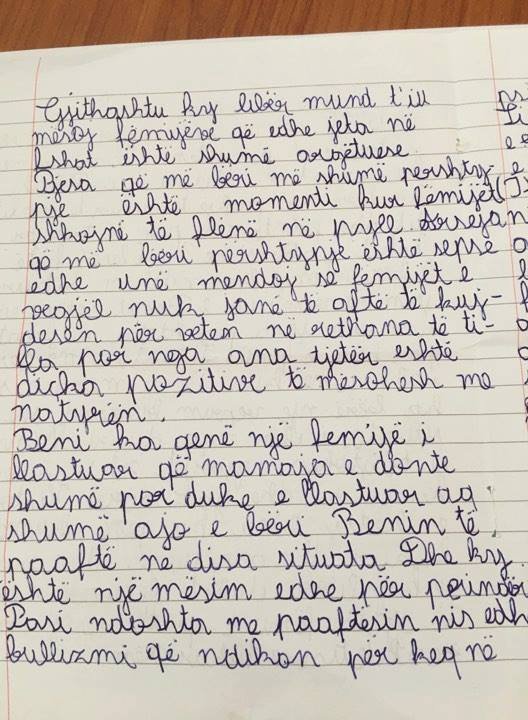 Gjithashtu ky libër mund t'iu
mësoj fëmijëve që edhe jeta në
fshat është shumë argëtuese.
Pjesa që më bëri më shumë pershty-
pje është momenti kur fëmijët
shkojnë të flënë në pyll. Arsejan
që më bëri përshtypje është sepse
edhe unë mendoj se femijët e
vegjël nuk janë të aftë të kuj-
desen për veten në rethana të ti-
lla por nga ana tjetër eshtë
diçka pozitive të mësohesh me
natyrën.
Beni ka qenë një femijë i
llastuar që mamaja e donte
shumë por duke e llastuar aq
shumë ajo e bëri Benin të
paaftë ne disa situata Dhe ky
është një mësim edhe për prindër
Pasi ndoshta me paaftësin nis edh
bullizmi që ndikon për keq në